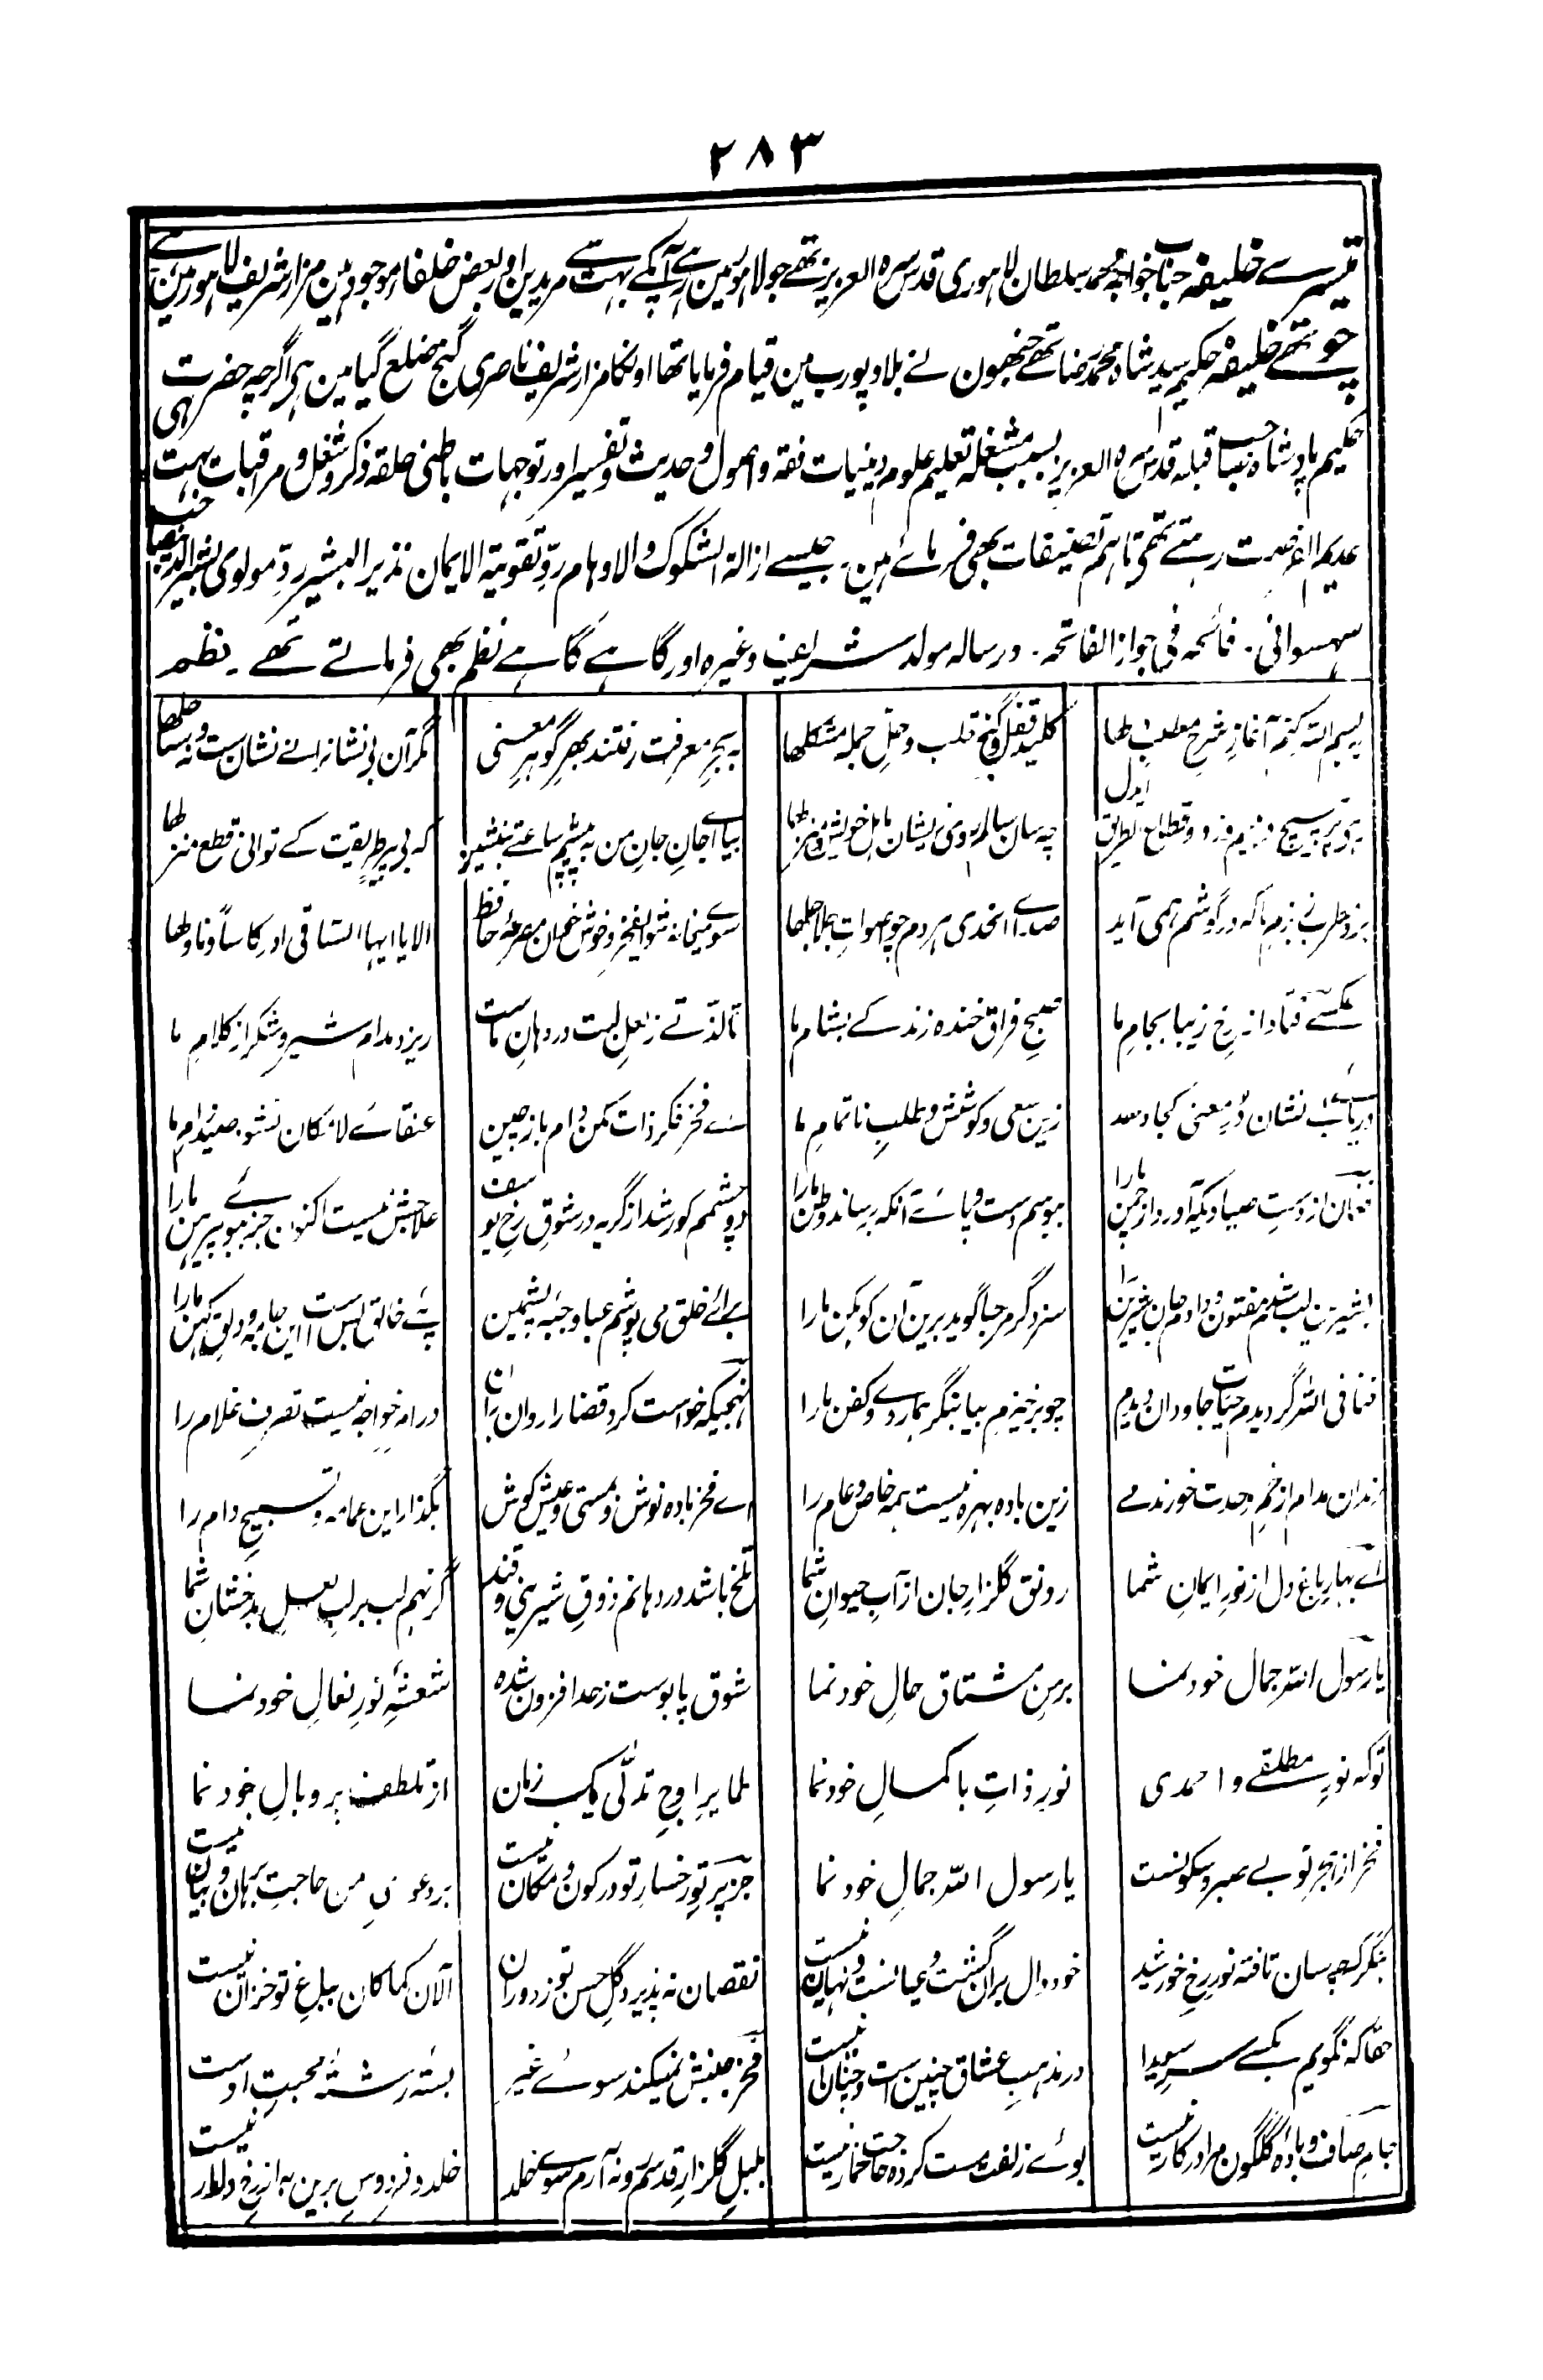 ۲۸۳
تیسرے خلیفہ جناب خواجہ محمد سلطان لاہوری قدس سرہ العزیز تھے جو لاہور مین رہے آپکے بہت سے مریدین اور بعض خلفاء موجود ہین مزار شریف لاہور مین ہے
چوتھے خلیفہ حکیم سید شاہ محمد رضا تھے جنھون نے بلاد پورب مین قیام فرمایا تھا اونکا مزار شریف ناصری گنج ضلع گیا مین ہی اگرچہ حضرت پی
حکیم بادشاہ صاحب قبلہ قدس سرہ العزیز بسبب مشغلہ تعلیم علوم دینیات فقہ و اصول و حدیث و تفسیر اور توجہات باطنی حلقہ ذکر و شغل و مراقبات بہت
عدیم الفرصت رہتے تھی تاہم تصنیفات بھی فرمائے ہین ۔ جیسے ازالۃ الشکوک والاوہام ردّ تقویۃ الایمان نذیر البشیر ردّ مولوی بشیر الدین صاحب
سہسوانی ۔ فاتحہ فی جواز الفاتحہ ۔ ورسالہ مولد شریف وغیرہ اور گاہے گاہے نظم بھی فرماتے تھے ۔ نظم
بہ بسم اللہ کنم آغاز شرح مطلب دلہا کلید قفل گنج قلب و حلّ جملہ مشکلہا بہ بحرِ معرفت رفتند بہرِ گوہرِ معنی مگر آن بی نشانرا نے نشان ست و نہ ساحلہا
چہ سان سالم روی زیشان بیا اے جانِ جانِ من بہ پیشم ساعتے بنشین کہ بی پیرِ طریقت کے توانی قطع منزلہا
بزد مطرب بزم ما کہ در گوشم ہمی آید صداے الخدی ہردم چو اصواتِ جلاجلہا سوے میخانہ شو ای فخر و خوش خوان مصرعۂ حافظ الا یا ایہا الساقی ادر کاساً و ناولہا
عکسے فتاد از رخِ زیبا بجامِ ما صبحِ فراق خندہ زند کے بشامِ ما تا لذّتے ز لعلِ لبت در دہانِ ماست ریزد مدام شیر و شکر از کلامِ ما
دریاب نشان دُرِ معنی کجا دہد زین سعی و کوشش و طلبِ ناتمامِ ما اے فخر فکر ذات مکن دام باز چین عنقاے لامکان نشود صیدِ دامِ ما
فغان از دستِ صیادیکہ آورد از چمن مارا ببوسم دست و پاے آنکہ رساند وطن مارا دو چشمم کور شد از گریہ در شوقِ رخِ یوسف علاجش نیست اکنون جز ببوے پیرہن مارا
بشیرین لب شدم مفتون و دادم جانِ شیرین را سزد گر مرحبا گوید برین آن کوہکن مارا براے خلق می پوشم عبا و جبّۂ پشمین پئے خالق بس ست این جامہ و دلق کہن مارا
فنا فی اللہ گردیدم حیات جاودان دیدم چو برخیزم بیا بنگر بما ردے و کفن مارا نہجیکہ خواست کرد قضا را روان بران در امرِ خواجہ نیست تصرف غلام را
رندان مدام از خمِ وحدت خورند مے زین بادہ بہرہ نیست ہمہ خاص و عام را اے فخر بادہ نوش و مستی و عیش کوش بگذار این عمامہ و تسبیحِ دام را
اے بہارِ باغِ دل از نورِ ایمانِ شما رونق گلزارِ جان از آبِ حیوانِ شما تلخ باشد در دہانم ذوقِ شیرینی و قند گر نہم لب بر لبِ لعلِ بدخشانِ شما
یا رسول اللہ جمال خود نما برمنِ مشتاق حالِ خود نما شوق پابوست ز حد افزون شدہ شعشۂ نورِ نعالِ خود نما
تو کہ نورِ مطلقے و احمدی نورِ ذاتِ باکمالِ خود نما بر اوجِ تدلّی یک زمان از تلطف پر و بالِ خود نما
فخر از ہجرِ تو بے صبر و سکونست یا رسول اللہ جمالِ خود نما جز پرتوِ رخسارِ تو در کون و مکان نیست بر دعویِ من حاجتِ برہان و بیان نیست
بنگر کہ چہ سان تافتہ نورِ رخِ خورشید خود دال بران گشت و عیانست و نہان نیست نقصان نہ پذیرد گلِ حسنِ تو ز دوران الآن کما کان بباغِ تو خزان نیست
حقّا کہ نگویم بکسے سرِ سویدا در مذہبِ عشاق چنین است و چنان نیست فخر جنبش نمیکند سوے غیر بستۂ رشتۂ محبتِ اوست
جامِ صاف و بادۂ گلگون مرا درکار نیست بوے زلفت مست کردہ حاجتِ خمار نیست بلبلِ گلزارِ قدسم رو نہ آرم سوے خلد خلد و فردوسِ برین بہ از رخِ دلدار نیست